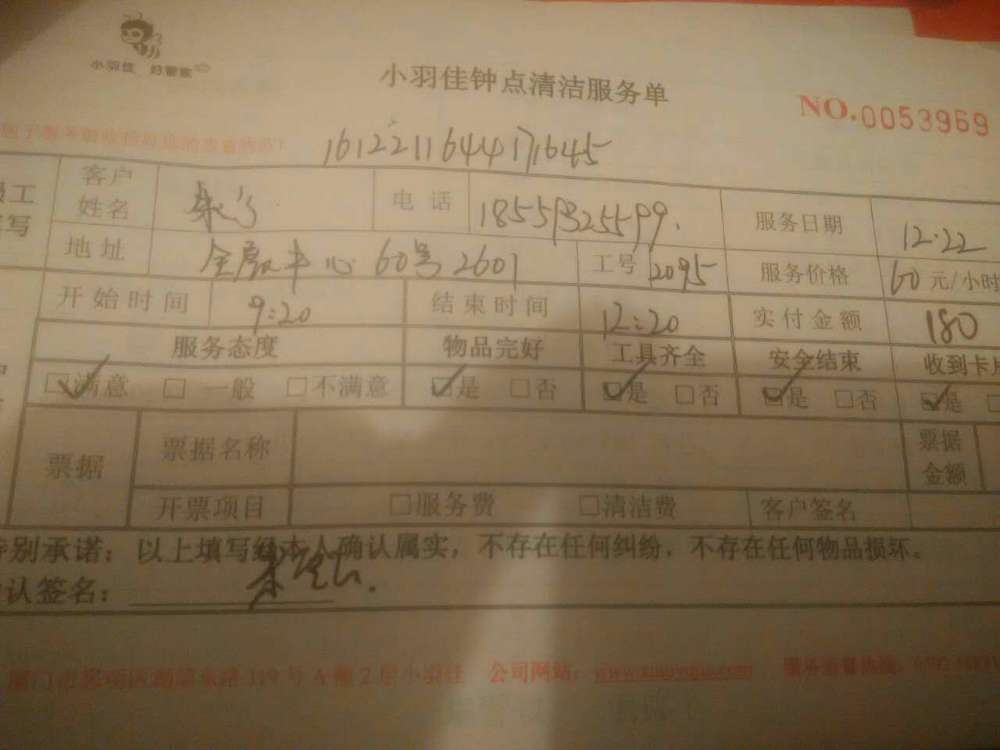 小羽佳 好管家
小羽佳钟点清洁服务单
NO.0053969
1612211644171645
客户姓名 电话 18559325599. 服务日期 12.22
地址 金融中心60号2601 工号 2095 服务价格 60元/小时
开始时间 9:20 结束时间 12:20 实付金额 180
服务态度 物品完好 工具齐全 安全结束 收到卡片
☑满意 □一般 □不满意 ☑是 □否 ☑是 □否 ☑是 □否 ☑是
票据 票据名称 票据金额
开票项目 □服务费 □清洁费 客户签名
特别承诺：以上填写经本人确认属实，不存在任何纠纷，不存在任何物品损坏。
确认签名：
119号A幢2层小羽佳 公司网站：